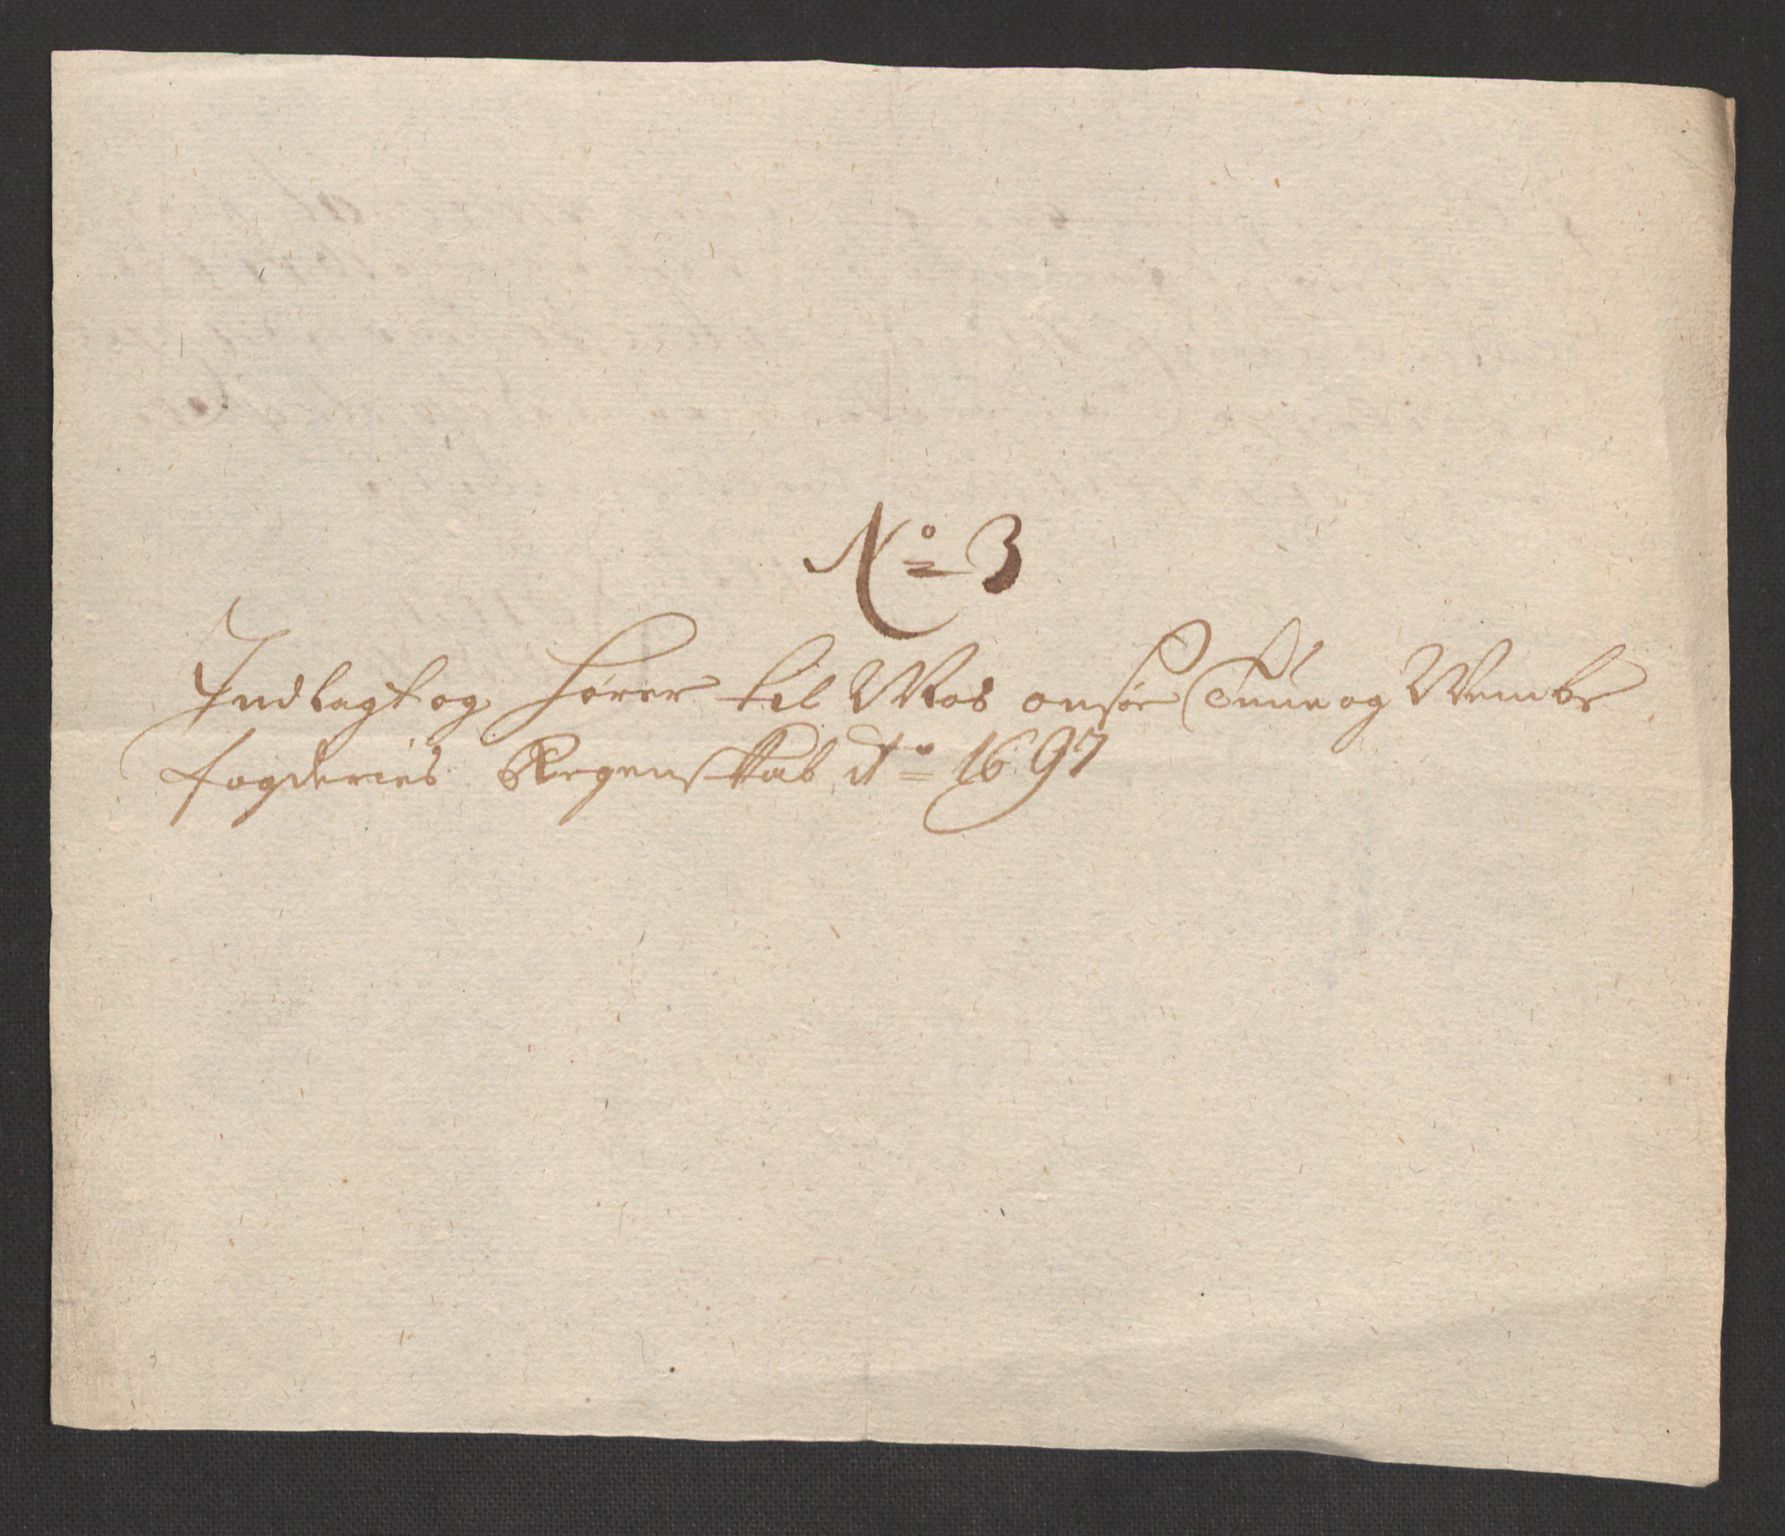 No 3
Indlagt og hører til Mos onsøe Tune og Wembe
fogderies Regenskab Ao 1697